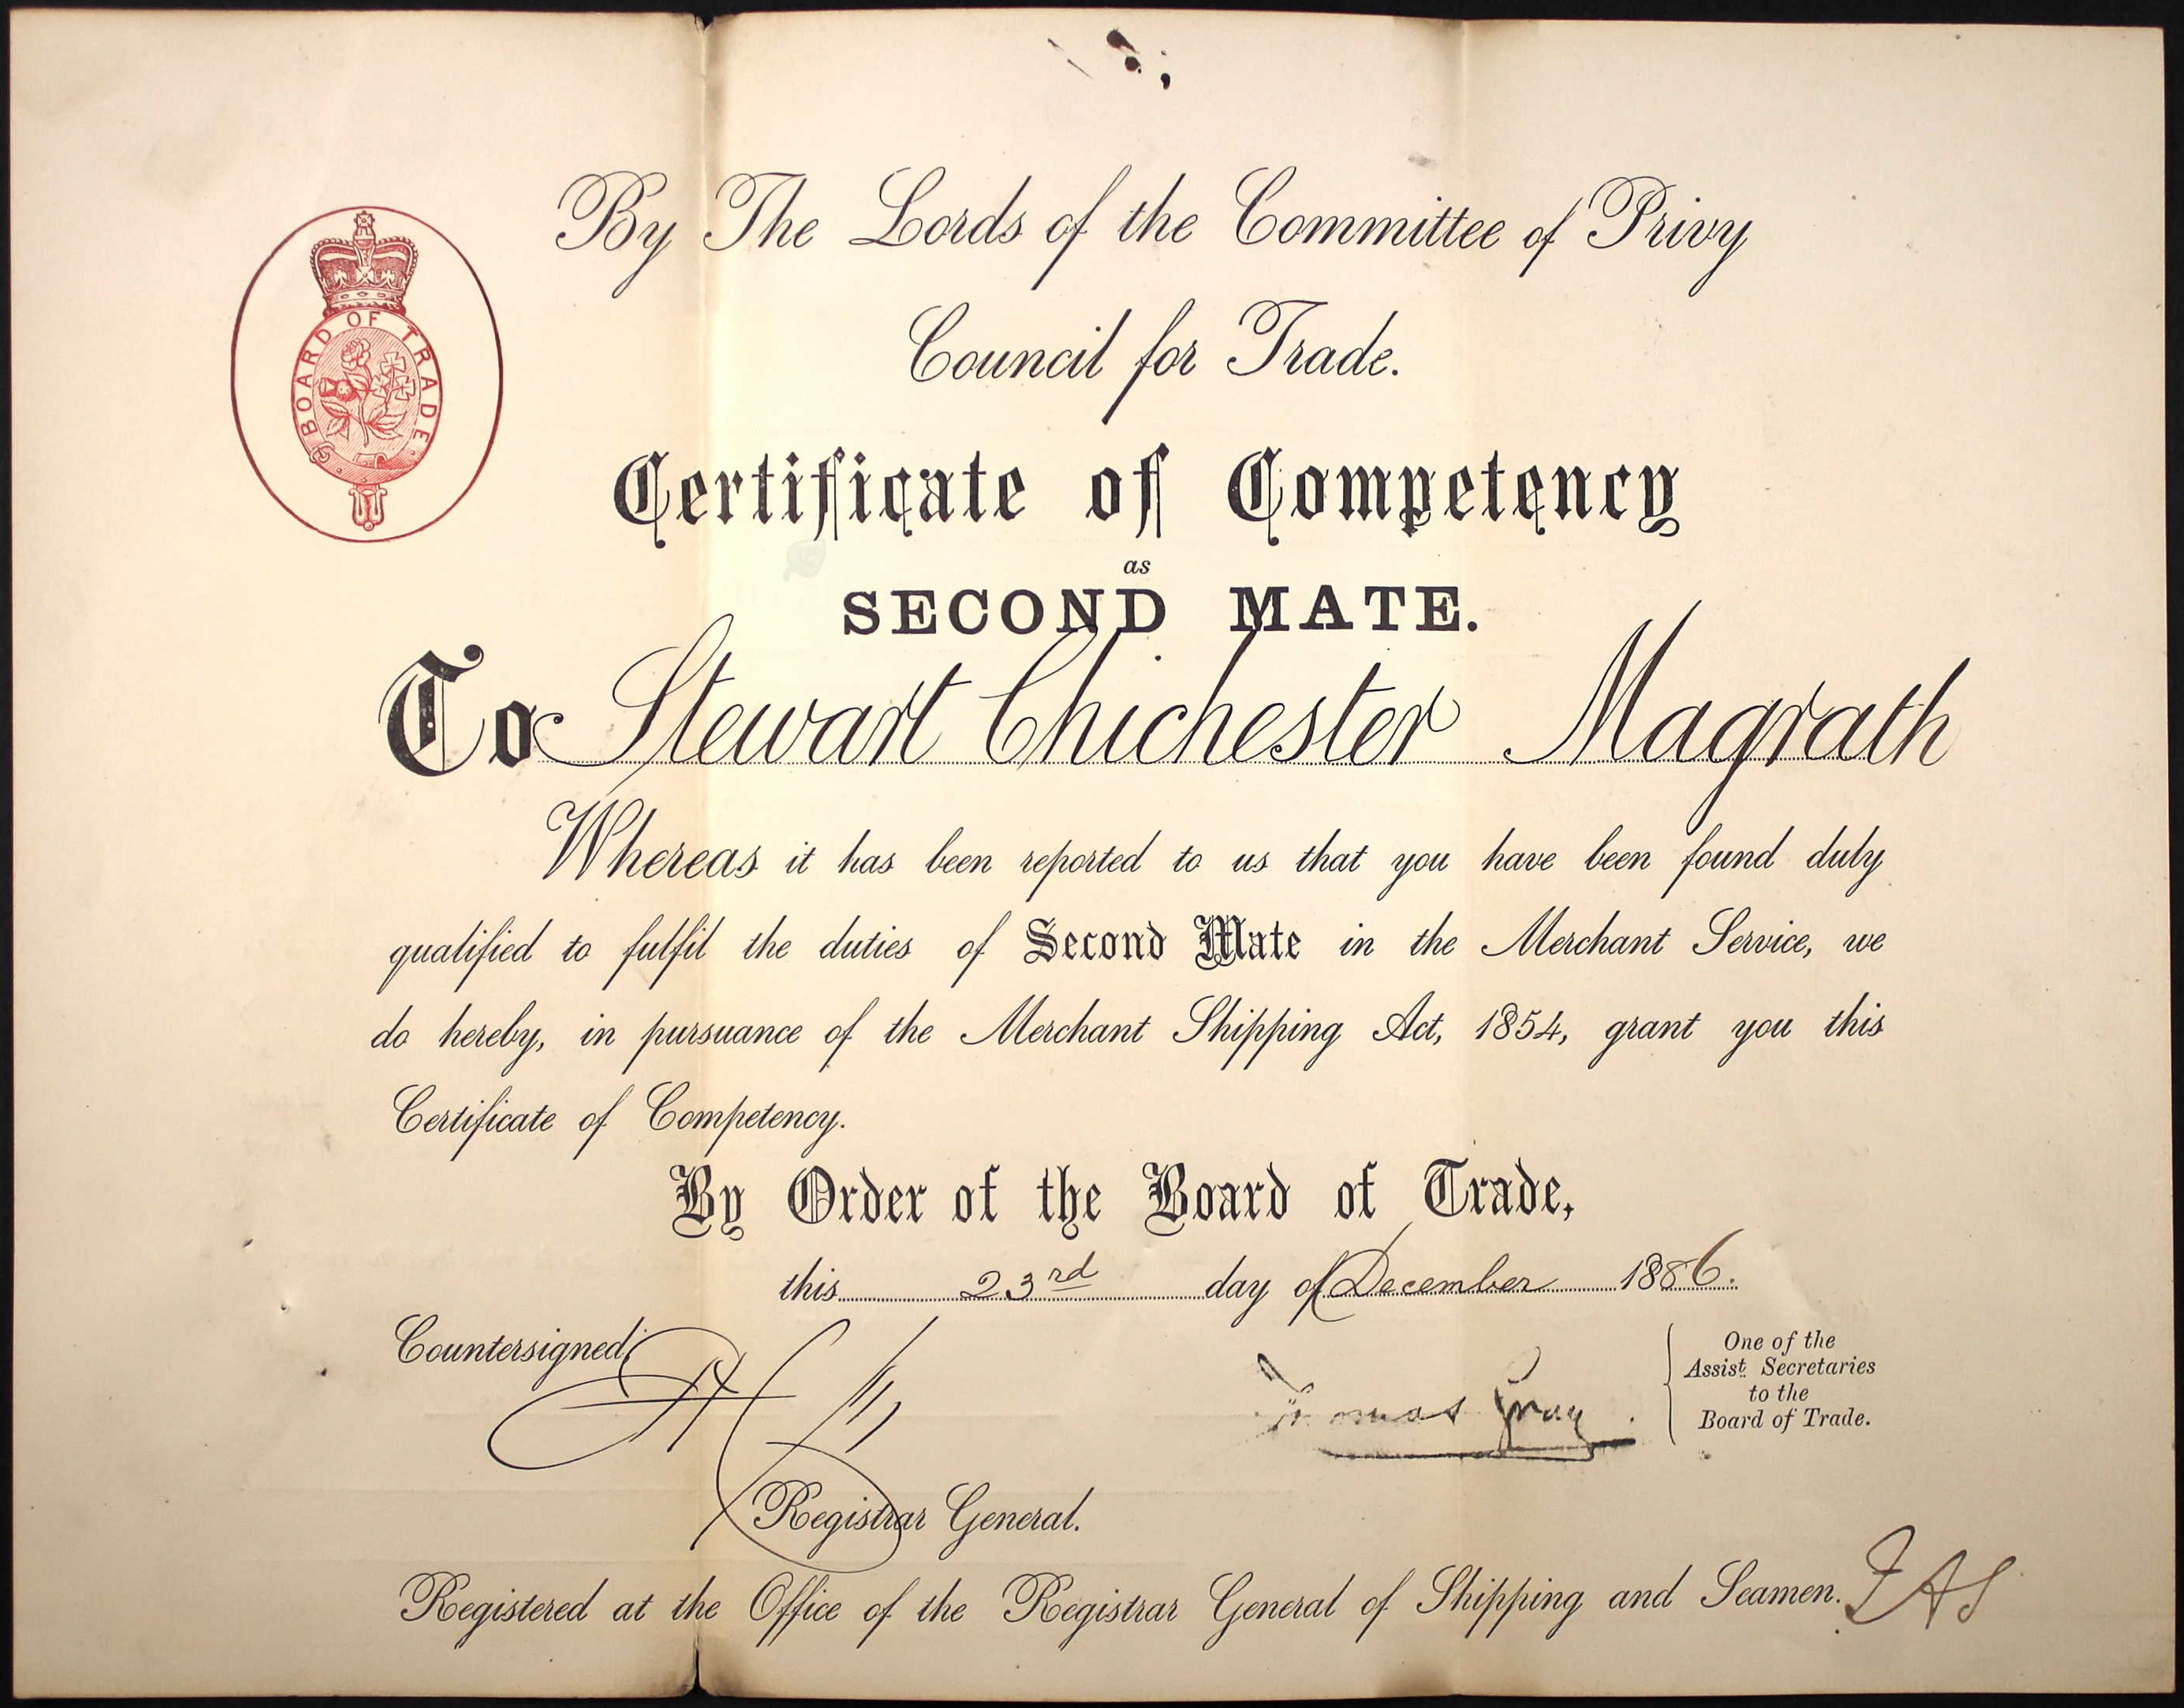 By The Lords of the Committee of Privy
Council for Trade.
BOARD OF TRADE
Certificate of Competency
as
SECOND MATE.
To Stewart Chichester Magrath
Whereas it has been reported to us that you have been found duly
qualified to fulfil the duties of Second Mate in the Merchant Service, we
do hereby, in pursuance of the Merchant Shipping Act, 1854, grant you this
Certificate of Competency.
By Order of the Board of Trade,
this 23rd day of December 1886.
Countersigned,
Thomas Gray
One of the
Assist. Secretaries
to the
Board of Trade.
Registrar General.
Registered at the Office of the Registrar General of Shipping and Seamen.